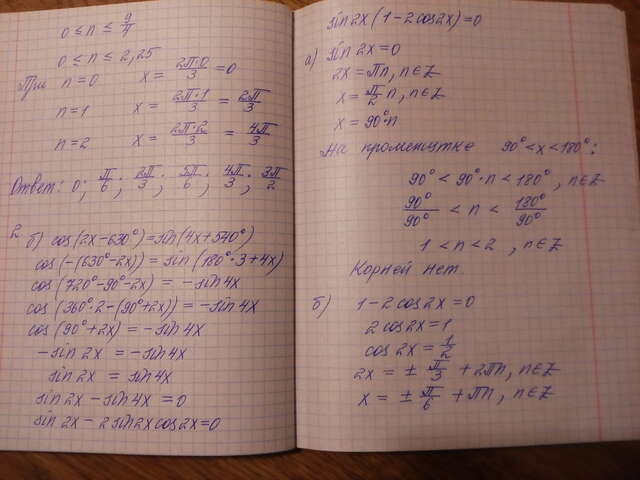 0 ≤ n ≤ 9/4
0 ≤ n ≤ 2,25
При n=0 x = 2π·0/3 = 0
n=1 x = 2π·1/3 = 2π/3
n=2 x = 2π·2/3 = 4π/3
Ответ: 0; π/6; 2π/3; 5π/6; 4π/3; 3π/2
2 б) cos(2x-630°)=sin(4x+540°)
cos(-(630°-2x)) = sin(180°·3+4x)
cos(720°-90°-2x) = -sin4x
cos(360°·2-(90°+2x)) = -sin4x
cos(90°+2x) = -sin4x
-sin2x = -sin4x
sin2x = sin4x
sin2x - sin4x = 0
sin2x - 2sin2x cos2x=0
sin2x(1-2cos2x)=0
а) sin2x=0
2x = πn, n∈Z
x = π/2 n, n∈Z
x = 90°·n
На промежутке 90°<x<180°:
90° < 90°·n < 180°, n∈Z
90°/90° < n < 180°/90°
1 < n < 2, n∈Z
Корней нет.
б) 1-2cos2x=0
2cos2x=1
cos2x = 1/2
2x = ± π/3 + 2πn, n∈Z
x = ± π/6 + πn, n∈Z